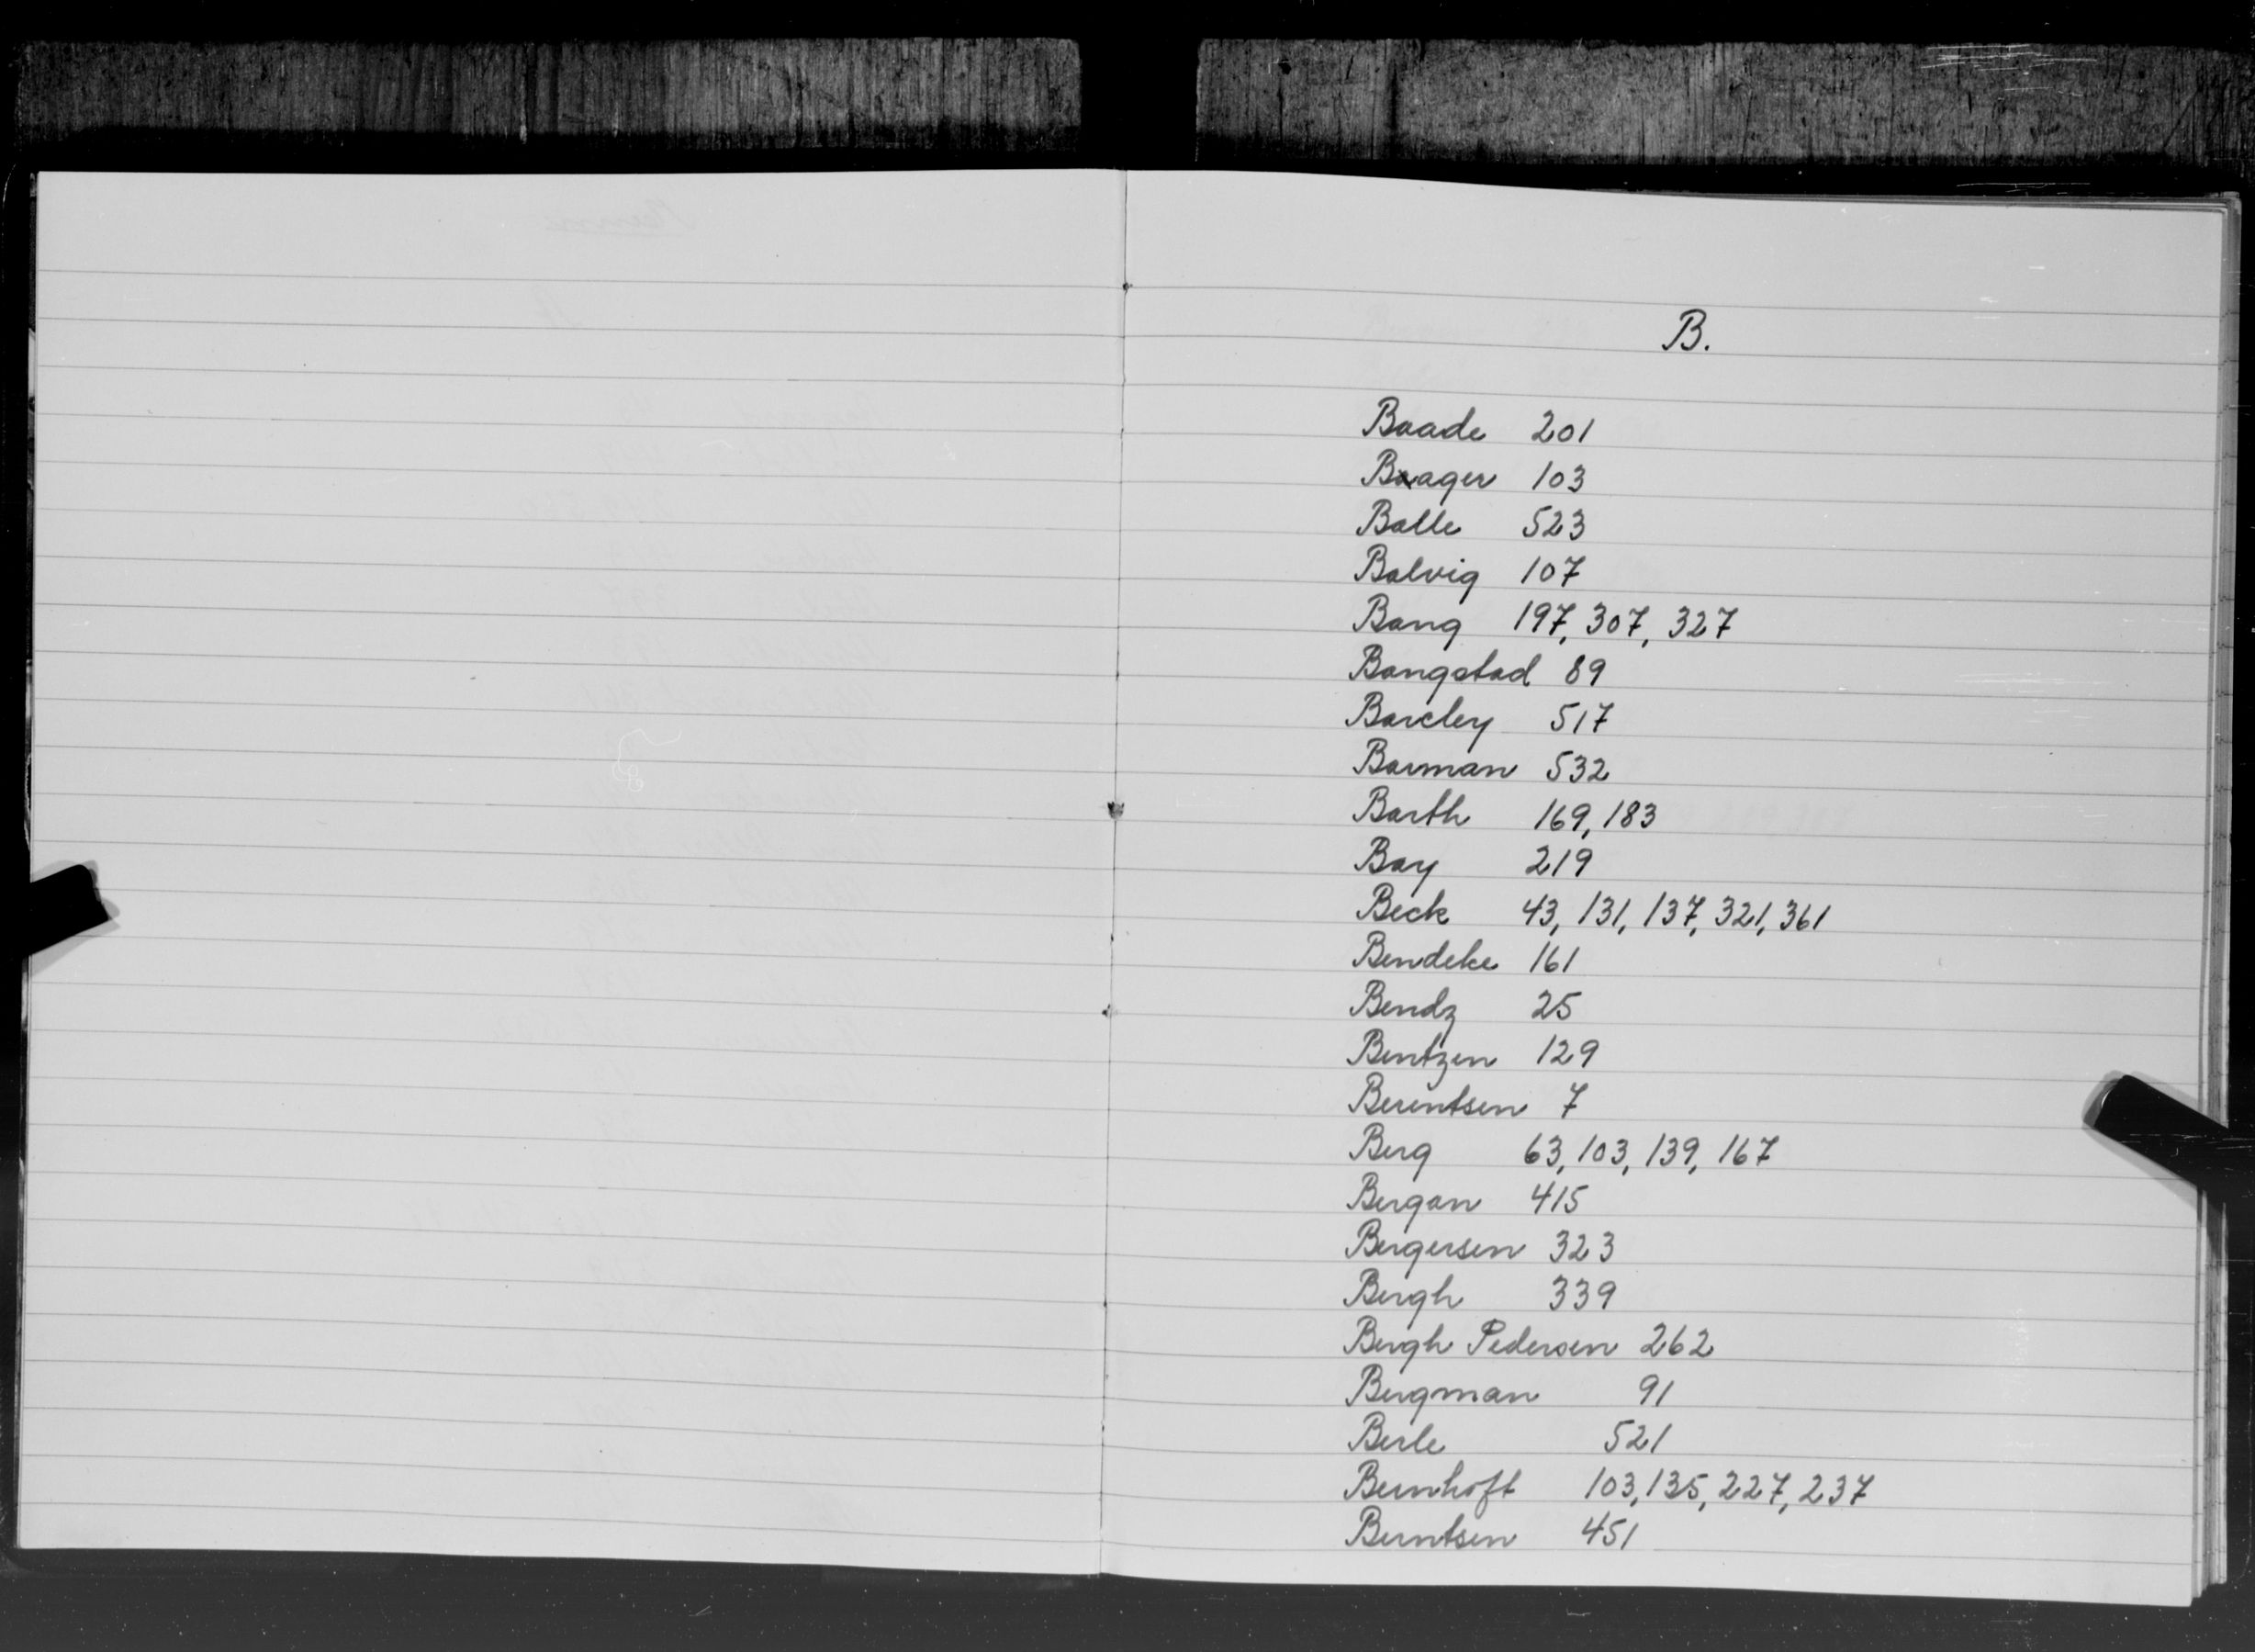 B.
Baade 201
Baager 103
Balle 523
Balvig 107
Bang 197, 307, 327
Bangstad 89
Barcley 517
Barman 532
Barth 169, 183
Bay 219
Beck 43, 131, 137, 321, 361
Bendeke 161
Bendz 25
Bentzen 129
Berentsen 7
Berg 63, 103, 139, 167
Bergan 415
Bergersen 323
Bergh 339
Bergh Pedersen 262
Bergman 91
Berle 521
Bernhoft 103, 135, 227, 237
Berntsen 451